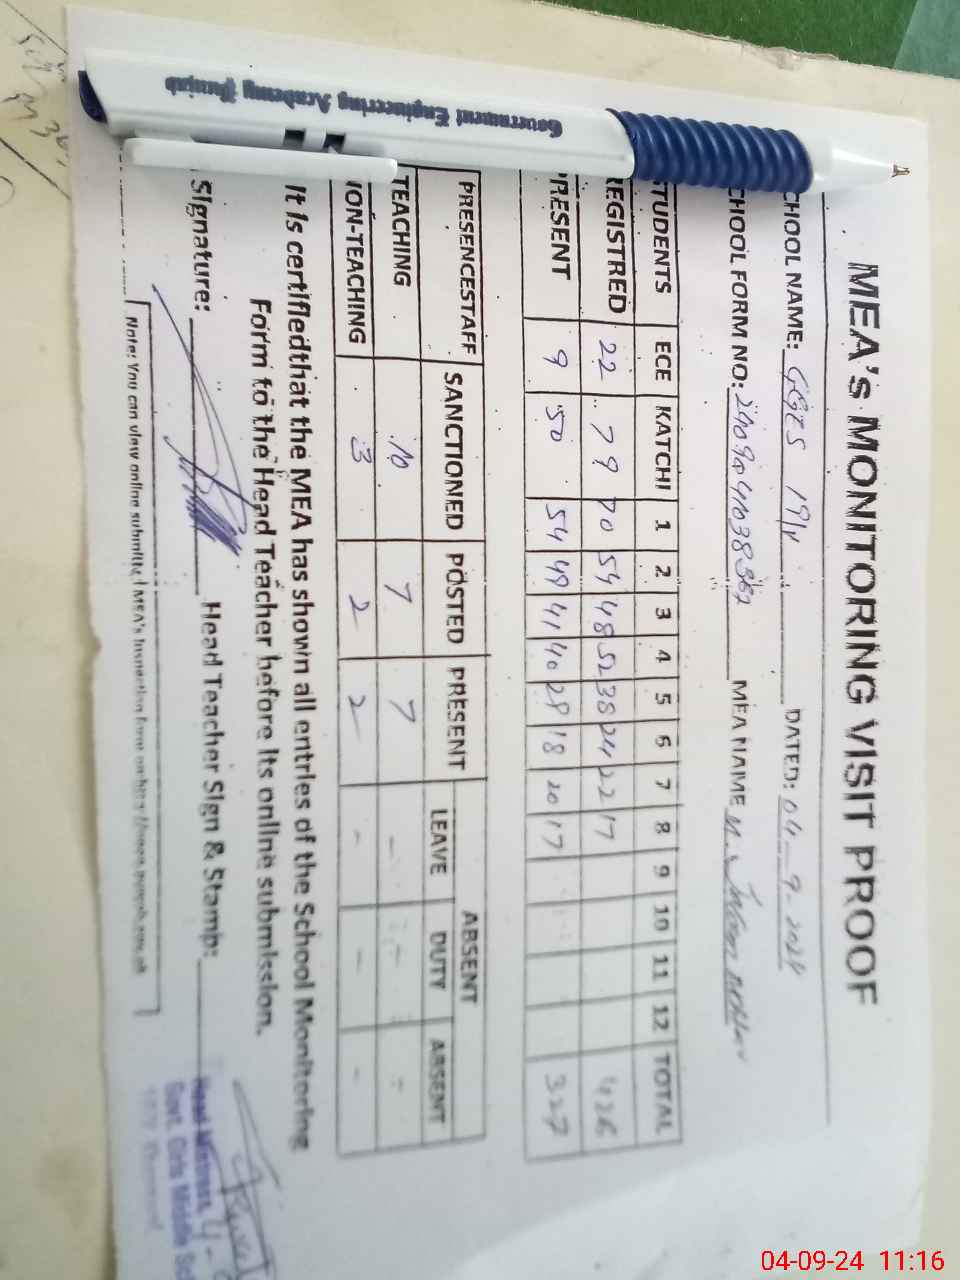 Government Engineering Academy Punjab
MEA's MONITORING VISIT PROOF
CHOOL NAME: GGES 19/1 DATED: 04-9-2024
CHOOL FORM NO: MEA NAME M.
STUDENTS ECE KATCHI 1 2 3 4 5 6 7 8 9 10 11 12 TOTAL
REGISTRED 22 79 70 54 48 52 38 24 22 17 426
PRESENT 9 50 54 49 41 40 28 18 20 17 327
PRESENCESTAFF SANCTIONED POSTED PRESENT ABSENT
LEAVE DUTY ABSENT
TEACHING 10 7 7 - - -
ION-TEACHING 3 2 2 - - -
It is certifiedthat the MEA has shown all entries of the School Monitoring
Form to the Head Teacher before its online submission.
Signature: Head Teacher Sign & Stamp:
Head Mistress
Govt. Girls Middle Sc
Note: You can view online submitted MEA's Inspection form
04-09-24 11:16